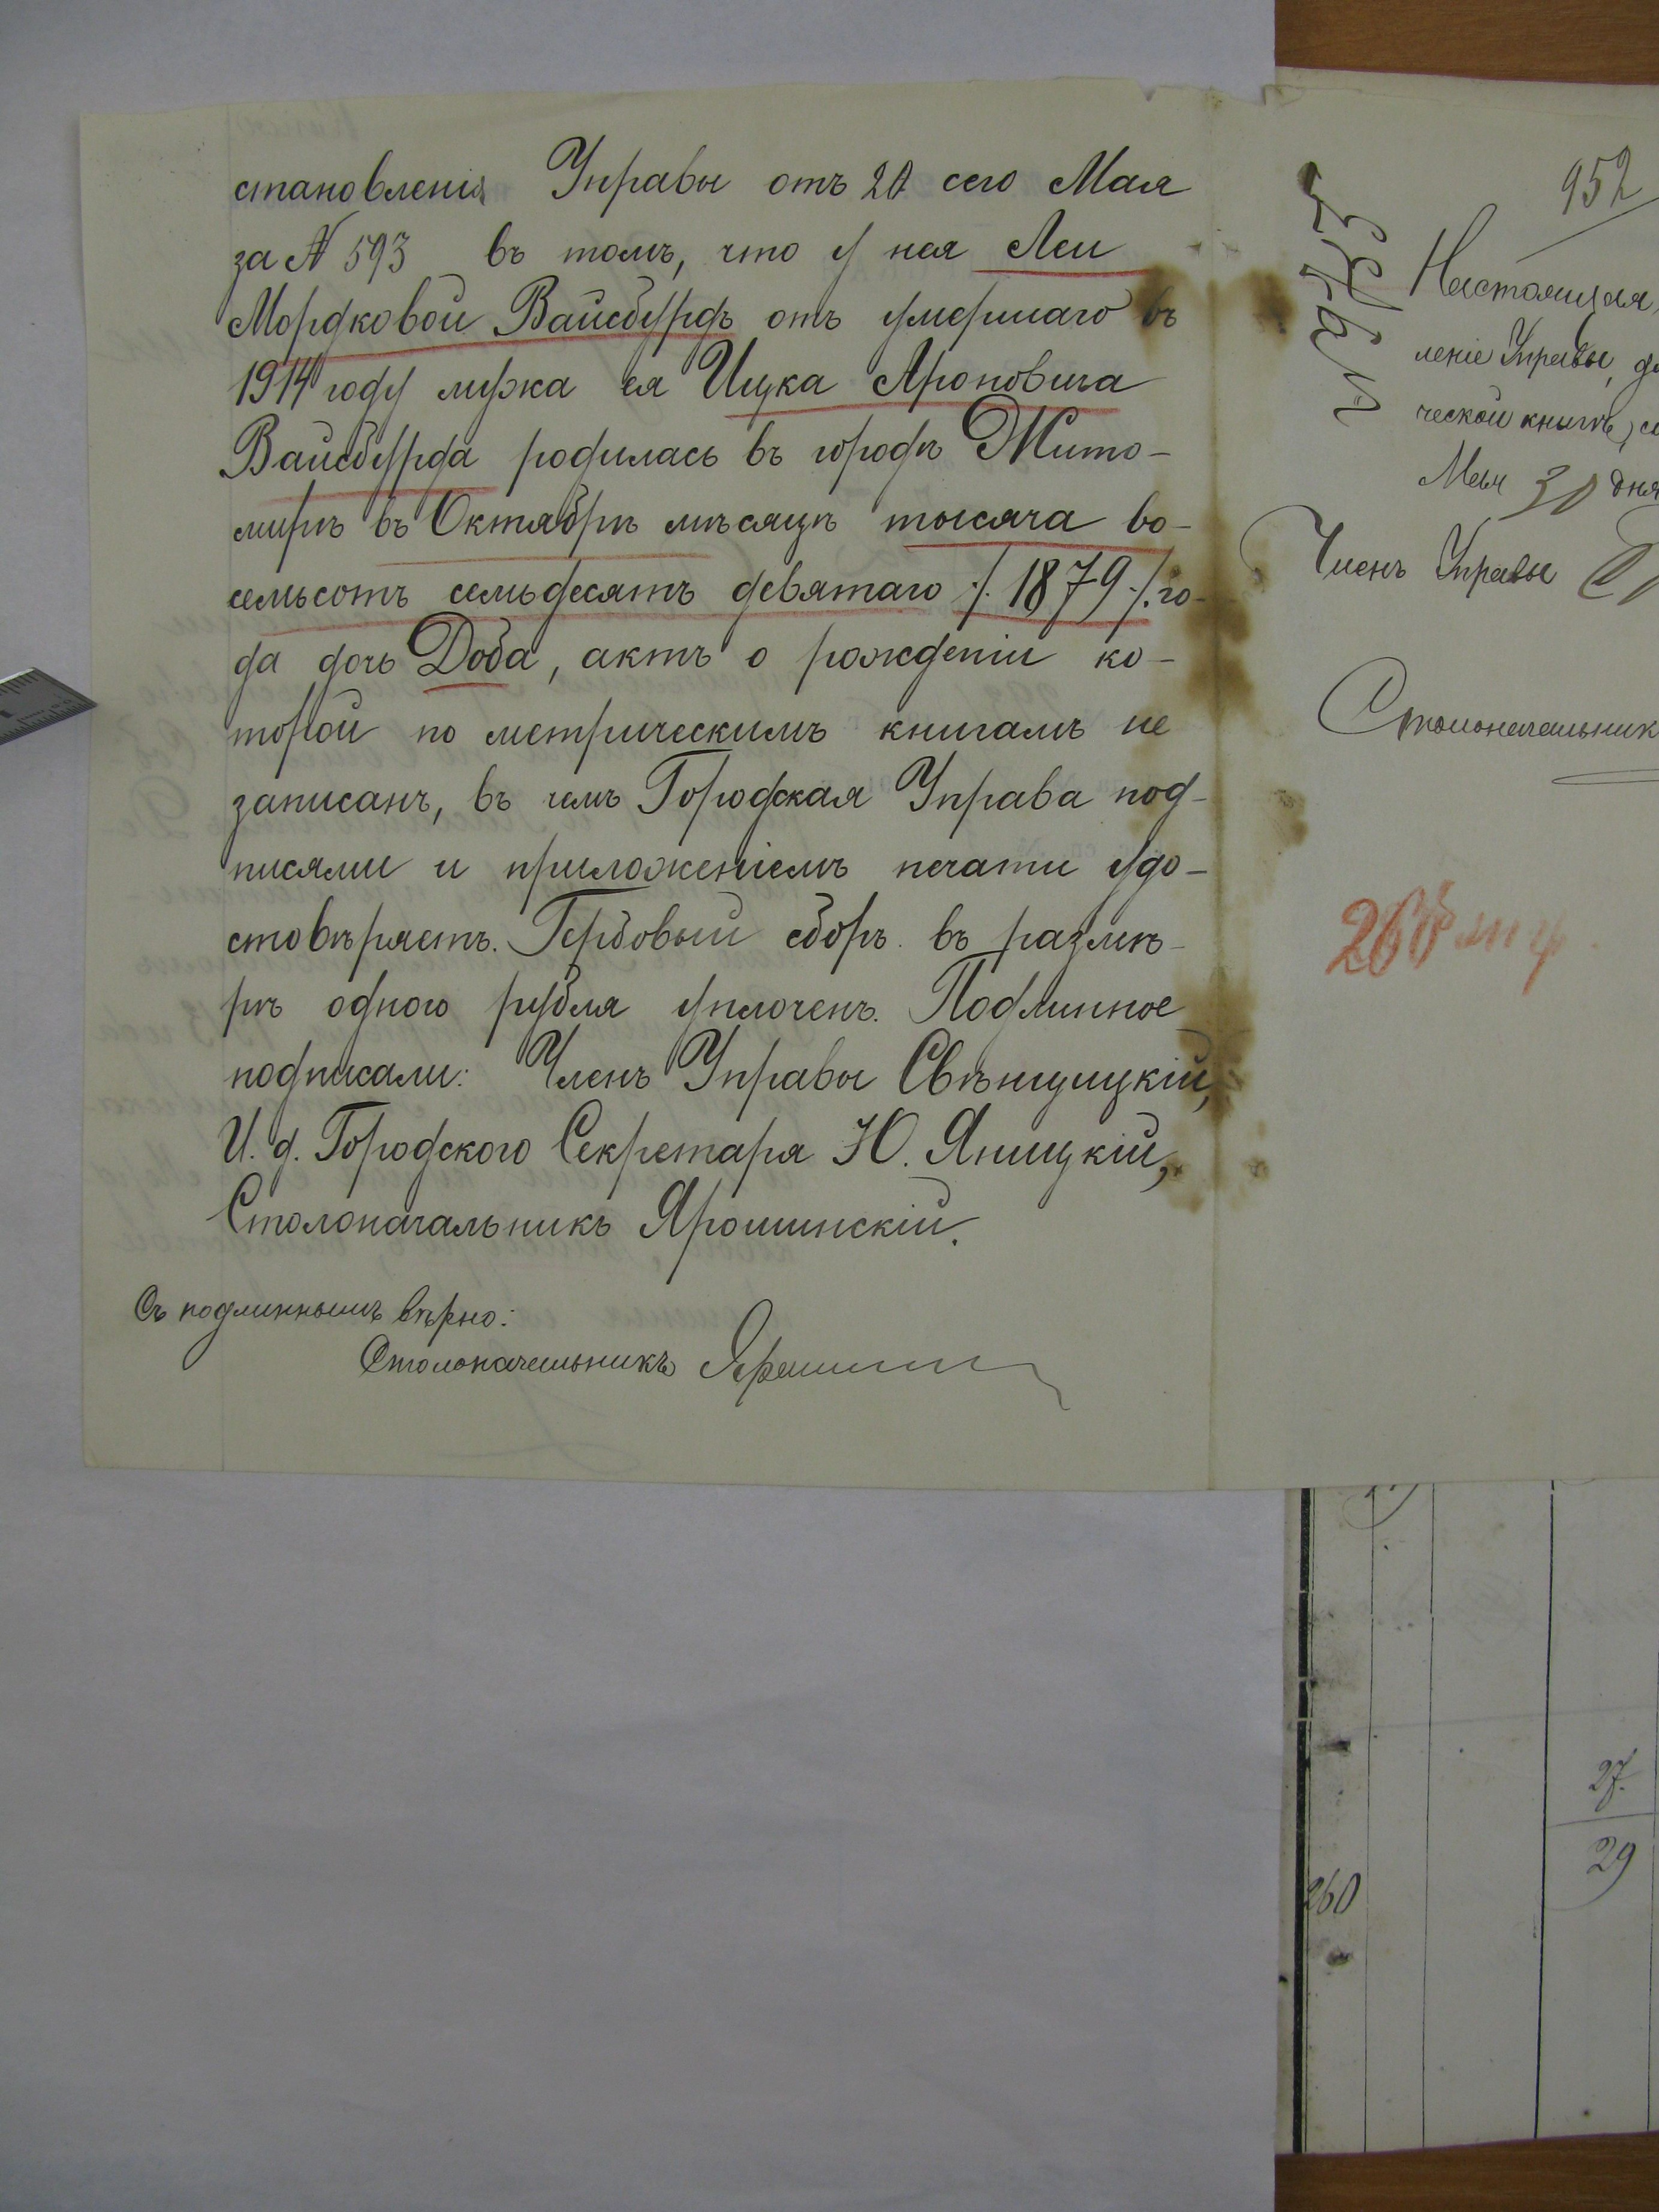 становленія Управы отъ 20 сего Мая
за № 593 въ томъ, что у нея Леи
Мордковой Вайсбурдъ отъ умершаго въ
1914 году мужа ея Ицка Ароновича
Вайсбурда родилась въ городѣ Жито-
мирѣ въ Октябрѣ мѣсяцѣ тысяча во-
семьсотъ семьдесятъ девятаго /. 1879 ./. го-
да дочь Доба, актъ о рожденіи ко-
торой по метрическимъ книгамъ не
записанъ, въ чемъ Городская Управа под-
писями и приложеніемъ печати удо-
стовѣряетъ. Гербовый сборъ въ размѣ-
рѣ одного рубля уплоченъ. Подлинное
подписали: Членъ Управы Свѣнцицкій,
И. д. Городского Секретаря Ю. Яницкій,
Столоначальникъ Ярошинскій.
Съ подлиннымъ вѣрно:
Столоначальникъ
952
Настоящая
леніе Управы,
ческой книгѣ,
Мая 30 дня
Членъ Управы
Столоначальник
260
27.
29
260